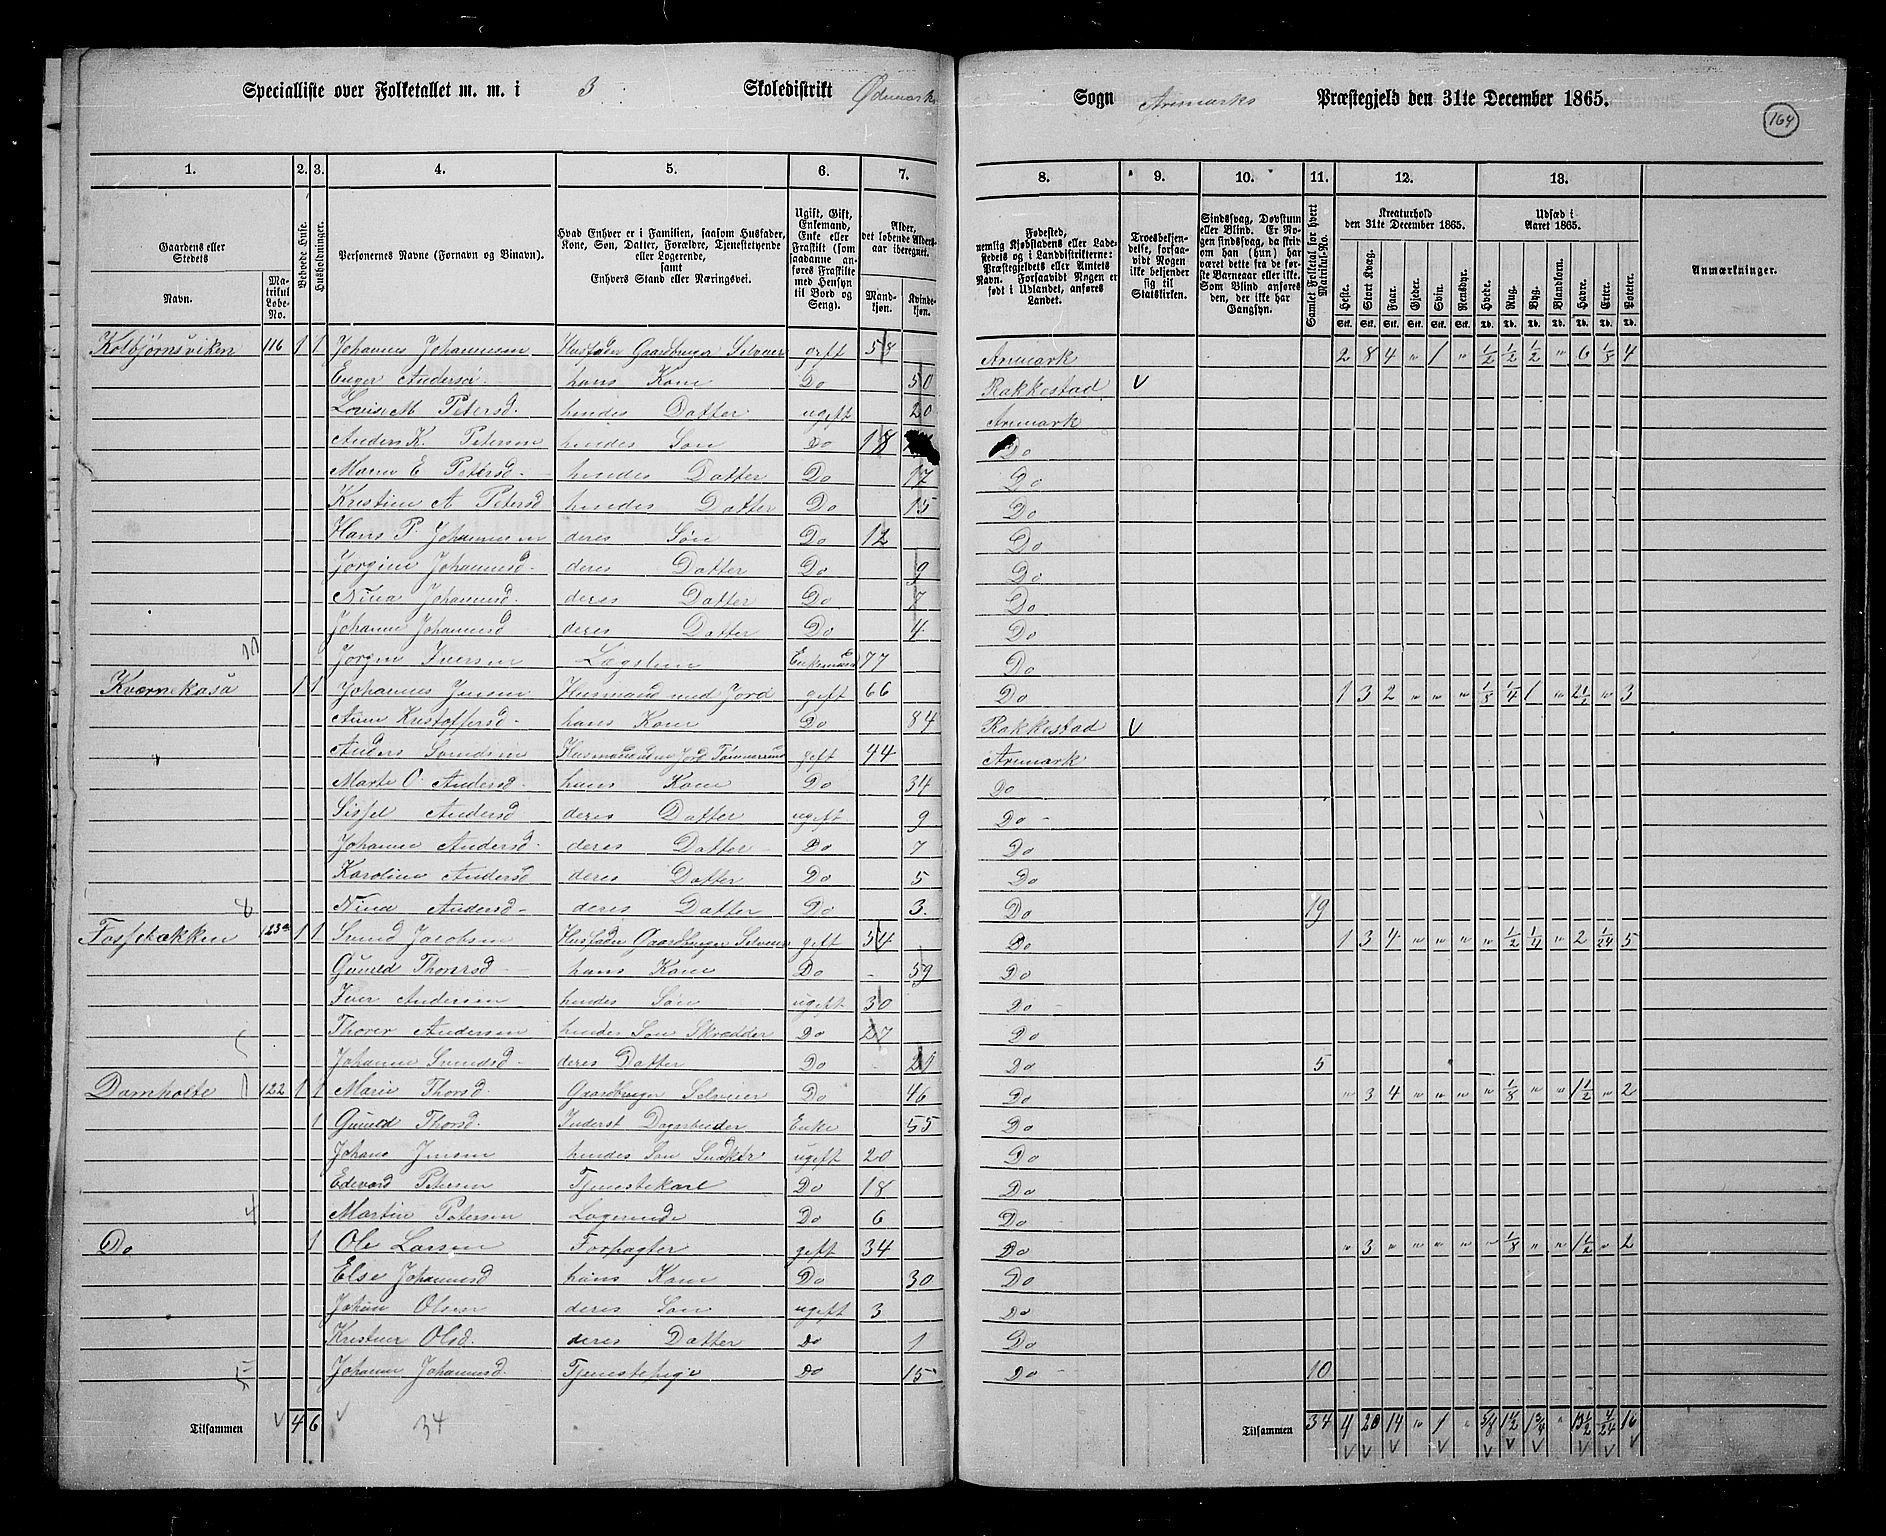 Specialliste over Folketallet m. m. i 3 Skoledistrikt Ødemarks Sogn Aremarks Præstegjeld den 31te December 1865.
164
1. 2. 3. 4. 5. 6. 7. 8. 9. 10. 11. 12. 13.
Gaardens eller Stedets
Navn.
Matrikul Løbe-No.
Beboede Huse.
Husholdninger.
Personernes Navne (Fornavn og Binavn).
Hvad Enhver er i Familien, saasom Husfader, Kone, Søn, Datter, Forældre, Tjenestetyende eller Logerende, samt Enhvers Stand eller Næringsvei.
Ugift, Gift, Enkemand, Enke eller Fraskilt (som saadanne anføres Fraskilte med Hensyn til Bord og Seng).
Alder, det løbende Aldersaar iberegnet.
Mandkjøn. Kvindekjøn.
Fødested, nemlig Kjøbstadens eller Ladestedets og i Landdistrikterne: Præstegjeldets eller Amtets Navn. Forsaavidt Nogen er født i Udlandet, anføres Landet.
Troesbekjendelse, forsaavidt Nogen ikke bekjender sig til Statskirken.
Sindssvag, Døvstum eller Blind. Er Nogen sindssvag, da skrives om han (hun) har været dette fra de første Barneaar eller ikke. Som Blind anføres den, der ikke har Gangsyn.
Samlet Folketal for hvert Matrikul-No.
Kreaturhold den 31te December 1865.
Heste. Stort Kvæg. Faar. Gjeder. Svin. Rensdyr.
Udsæd i Aaret 1865.
Hvede. Rug. Byg. Blandkorn. Havre. Erter. Poteter.
Anmærkninger.
Kolbjørnsviken 116 1 1 Johannes Johannessen Husfader Gaardbruger Selveier gift 58 Aremark 2 8 4 " 1 " 1/2 1/2 1/2 " 6 1/8 4
Enger Andersd. hans Kone Do 50 Rakkestad V
Lovise M Petersd. hendes Datter ugift 20 Aremark
Anders K. Petersen hendes Søn Do 18 Do
Maren E Petersd. hendes Datter Do 17 Do
Kristine A Petersd hendes Datter Do 15 Do
Hans P. Johannessen deres Søn Do 12 Do
Jørgine Johannesd. deres Datter Do 9 Do
Nina Johannesd. deres Datter Do 7 Do
Johanne Johannesd deres Datter Do 4 Do
11 Jørgen Iversen Lægslem Enkemand 77 Do
Kværnekasa 1 1 Johannes Jensen Husmand med Jord gift 66 Do 1 3 2 " " " 1/8 1/4 1 " 2 1/2 " 3
Anne Kristoffersd. hans Kone Do 84 Rakkestad V
Anders Svendsen Husmand uden Jord Tømmermand gift 44 Aremark
Marte O Andersd. hans Kone Do 34 Do
Sissel Andersd deres Datter ugift 9 Do
Johanne Andersd. deres Datter Do 7 Do
Karoline Andersd deres Datter Do 5 Do
8 Nina Andersd. deres Datter Do 3. Do 19
Fossebækken 123a 1 1 Svend Jacobsen Husfader Gaardbruger Selveier gift 54 Do 1 3 4 " " " " 1/2 1/4 " 2 1/24 5
Gunild Thorersd hans Kone Do 59 Do
Iver Andersen hendes Søn ugift 30 Do
Thorer Andersen hendes Søn Skrædder Do 27 Do
5 Johanne Svendsd. deres Datter Do 21 Do 5
Damholte 122 1 1 Marie Thorsd. Gaardbruger Selveier Do 46 Do " 3 4 " " " " 1/8 " " 1 1/2 " 2
1 Gunild Thorsd. Inderst Dagarbeider Enke 55 Do
Johans Jensen hendes Søn Snedker ugift 20 Do
Edevard Petersen Tjenestekarl Do 18 Do
4 Martin Petersen Logerende Do 6 Do
Do 1 Ole Larsen Forpagter gift 34 Do " 3 " " " " " 1/8 " " 1 1/2 " 2
Else Johannesd hans Kone Do 30 Do
Johan Olsen deres Søn ugift 3 Do
Olsd. deres Datter Do 1 Do
5 Johanne Johannesd. Tjenestepige Do 15 Do 10
Tilsammen V 4 6 V 34 Tilsammen 34 4 20 14 " 1 " 5/8 1 1/2 1 3/4 " 13 1/2 4/24 16
V V V V V V V V V V